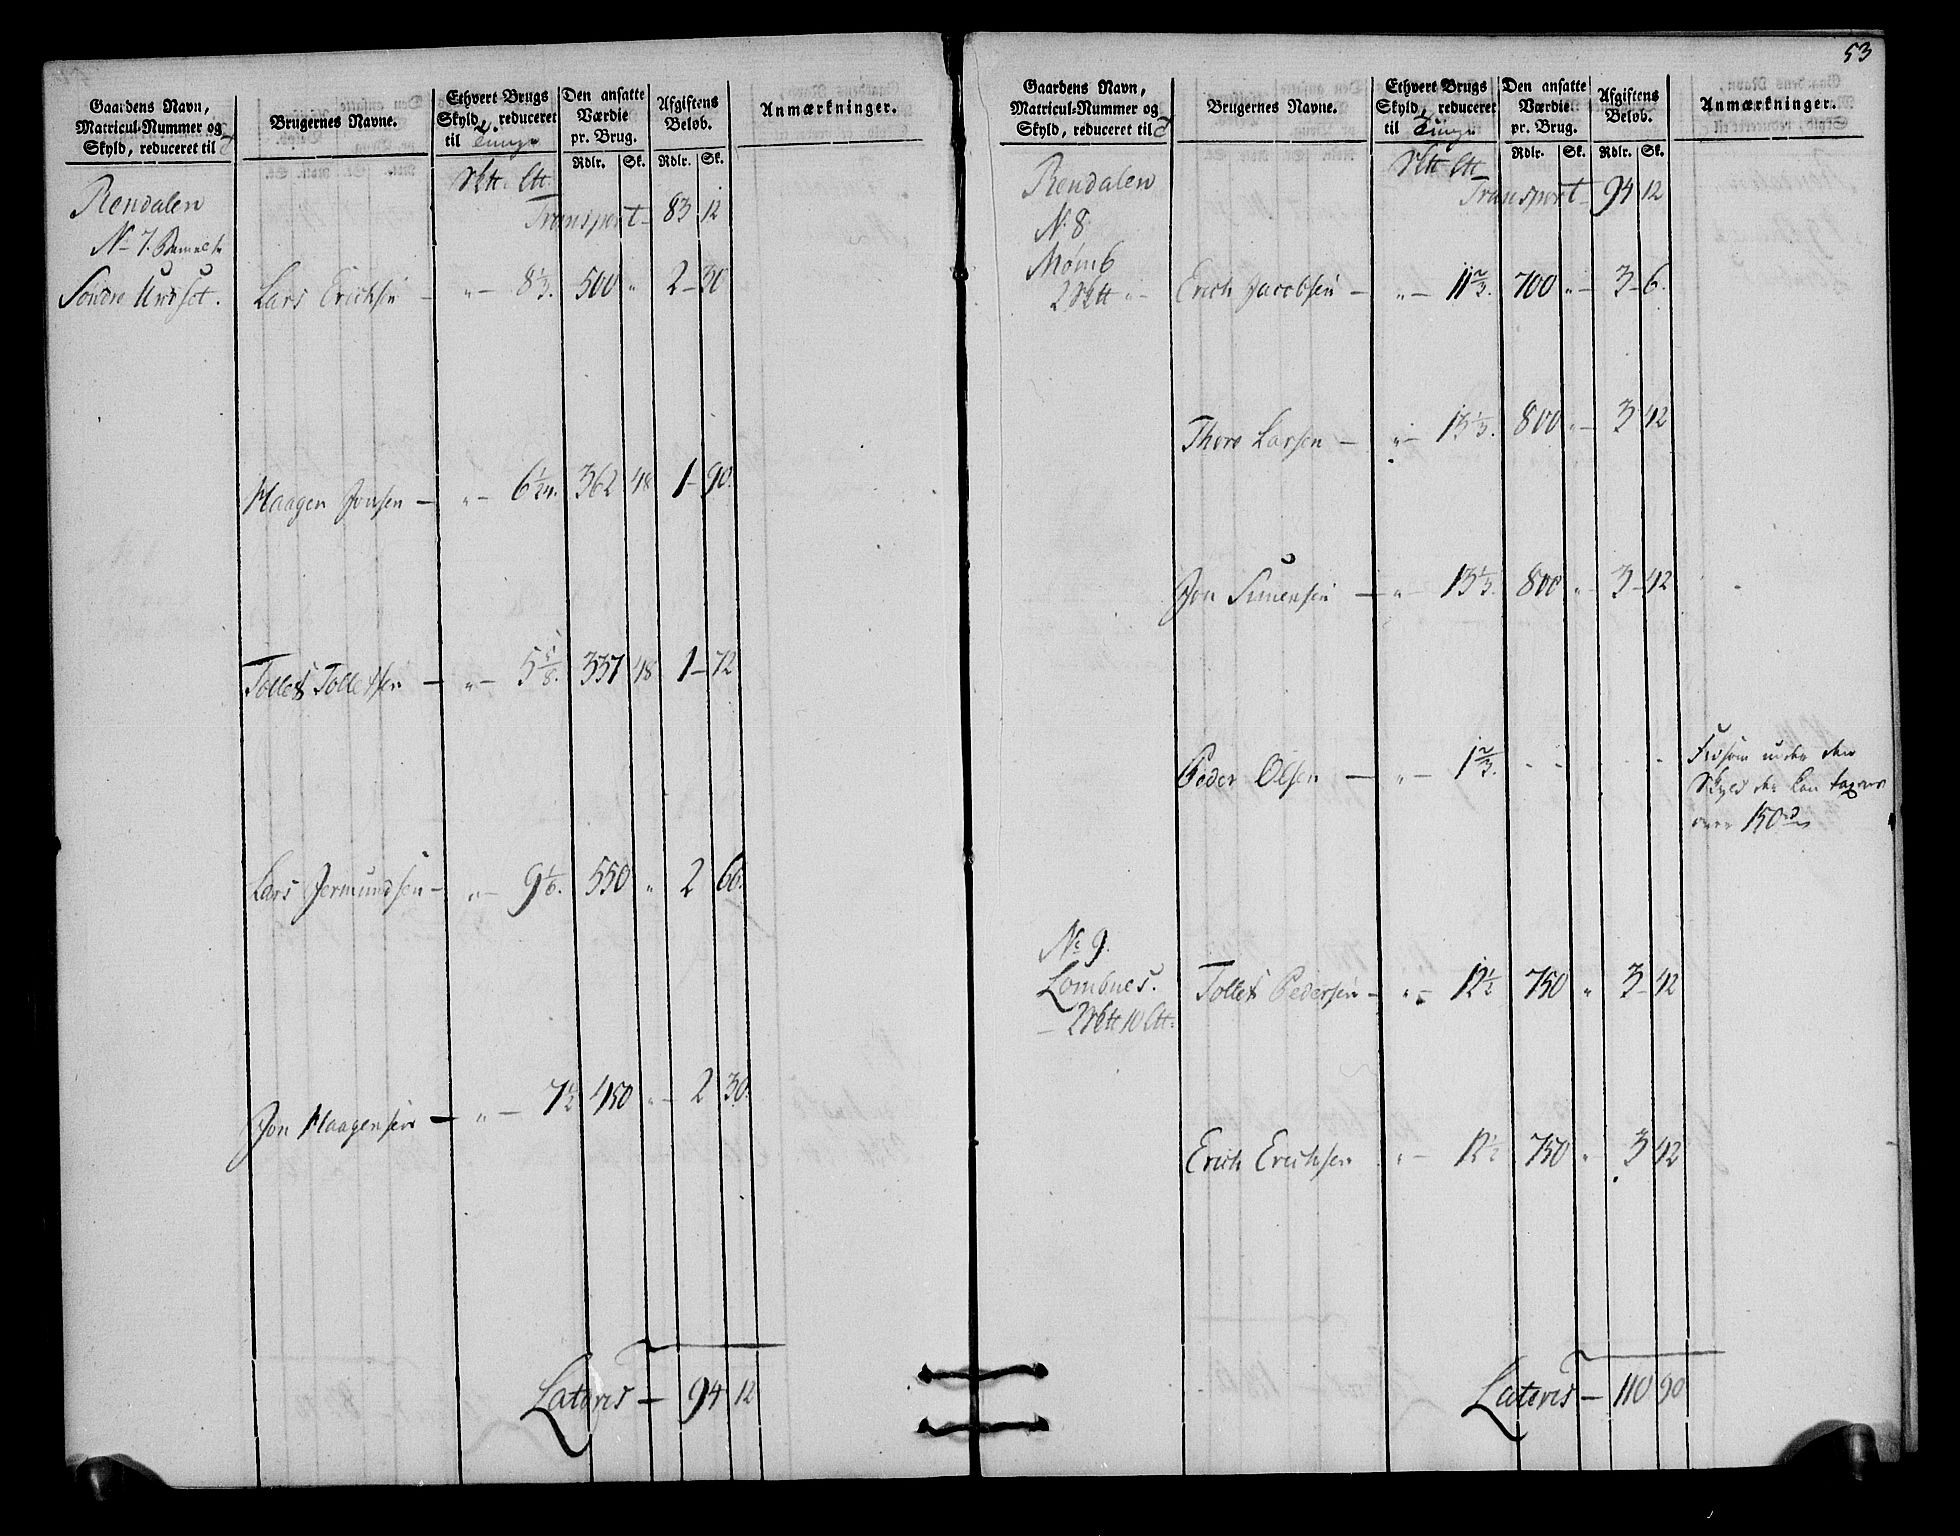 53
Gaardens Navn, Matricul-Nummer og Skyld, reduceret til
Brugernes Navne.
Ethvert Brugs Skyld, reduceret til Tunge
Den ansatte Værdie pr. Brug.
Afgiftens Beløb.
Anmærkninger.
Rdlr. Sk. Rdlr. Sk.
Rendalen
Transport - 83 12
No 7.
Søndre Undset. Lars Erichsen - " - 8 1/3. 500 " 2 - 30
Haagen Jonsen - " - 6 1/24. 362 48 1 - 90.
Tollef Tollefsen - " - 5 5/8. 337 48 1 - 72
Lars Jermundsen - " - 9 1/6. 550 " 2 66.
Jon Haagensen - " - 7 1/2 450 " - 2 30.
Lateris - 94 12
Gaardens Navn, Matricul-Nummer og Skyld, reduceret til
Brugernes Navne.
Ethvert Brugs Skyld, reduceret til Tunge
Den ansatte Værdie pr. Brug.
Afgiftens Beløb.
Anmærkninger.
Rdlr. Sk. Rdlr. Sk.
Rendalen
Transport - 94 12
No 8
Erich Jacobsen - " - 11 2/3. 700 " - 3 - 6.
Thore Larsen - " - 13 1/3. 800 " - 3 42
Jon Simensen - " - 13 1/3. 800 " - 3 - 42
Peder Olsen - " - 1 2/3. - - - -
150
No 9.
Lombnes. Tollef Pedersen - " - 12 1/2 750 " 3 - 42
Erich Erichsen " - 12 1/2 750 " 3 42
Lateris - 110 90